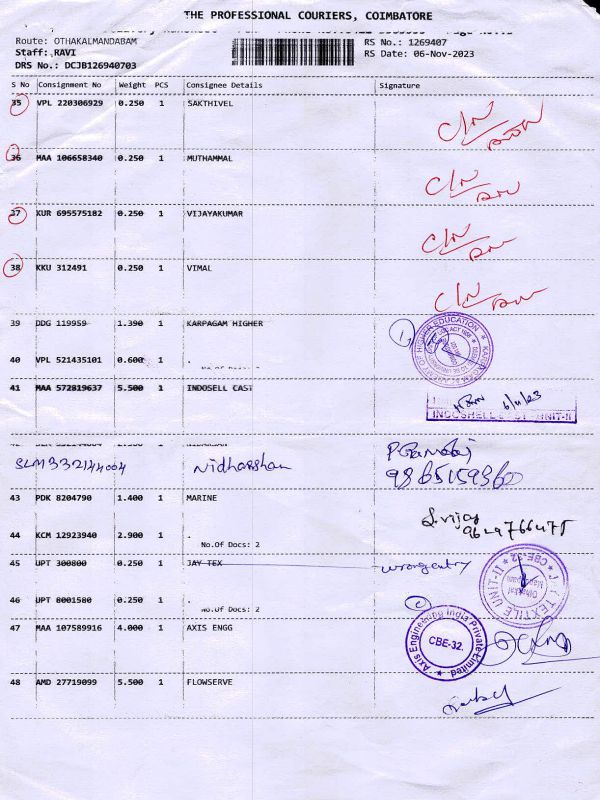 THE PROFESSIONAL COURIERS, COIMBATORE
Route: OTHAKALMANDABAM
RS No.: 1269407
Staff: RAVI
RS Date: 06-Nov-2023
DRS No.: DCJB126940703
S No Consignment No Weight PCS Consignee Details Signature
35 VPL 220306929 0.250 1 SAKTHIVEL C/N
36 MAA 106658340 0.250 1 MUTHAMMAL C/N
37 KUR 695575182 0.250 1 VIJAYAKUMAR C/N
38 KKU 312491 0.250 1 VIMAL C/N
39 DDG 119959 1.390 1 KARPAGAM HIGHER
40 VPL 521435101 0.600 1 .
41 MAA 572819637 5.500 1 INDOSELL CAST
6/11/23
UNIT-II
SLM332144004 Nidharshan
9865159360
43 PDK 8204790 1.400 1 MARINE
S.vijay
9629766475
44 KCM 12923940 2.900 1 .
No.Of Docs: 2
45 UPT 300800 0.250 1 JAY TEX wrong entry
TEXTILE UNIT-II CBE-32
46 UPT 8001580 0.250 1 .
No.Of Docs: 2
47 MAA 107589916 4.000 1 AXIS ENGG
Axis Engineering India Private Limited
CBE-32.
48 AMD 27719099 5.500 1 FLOWSERVE